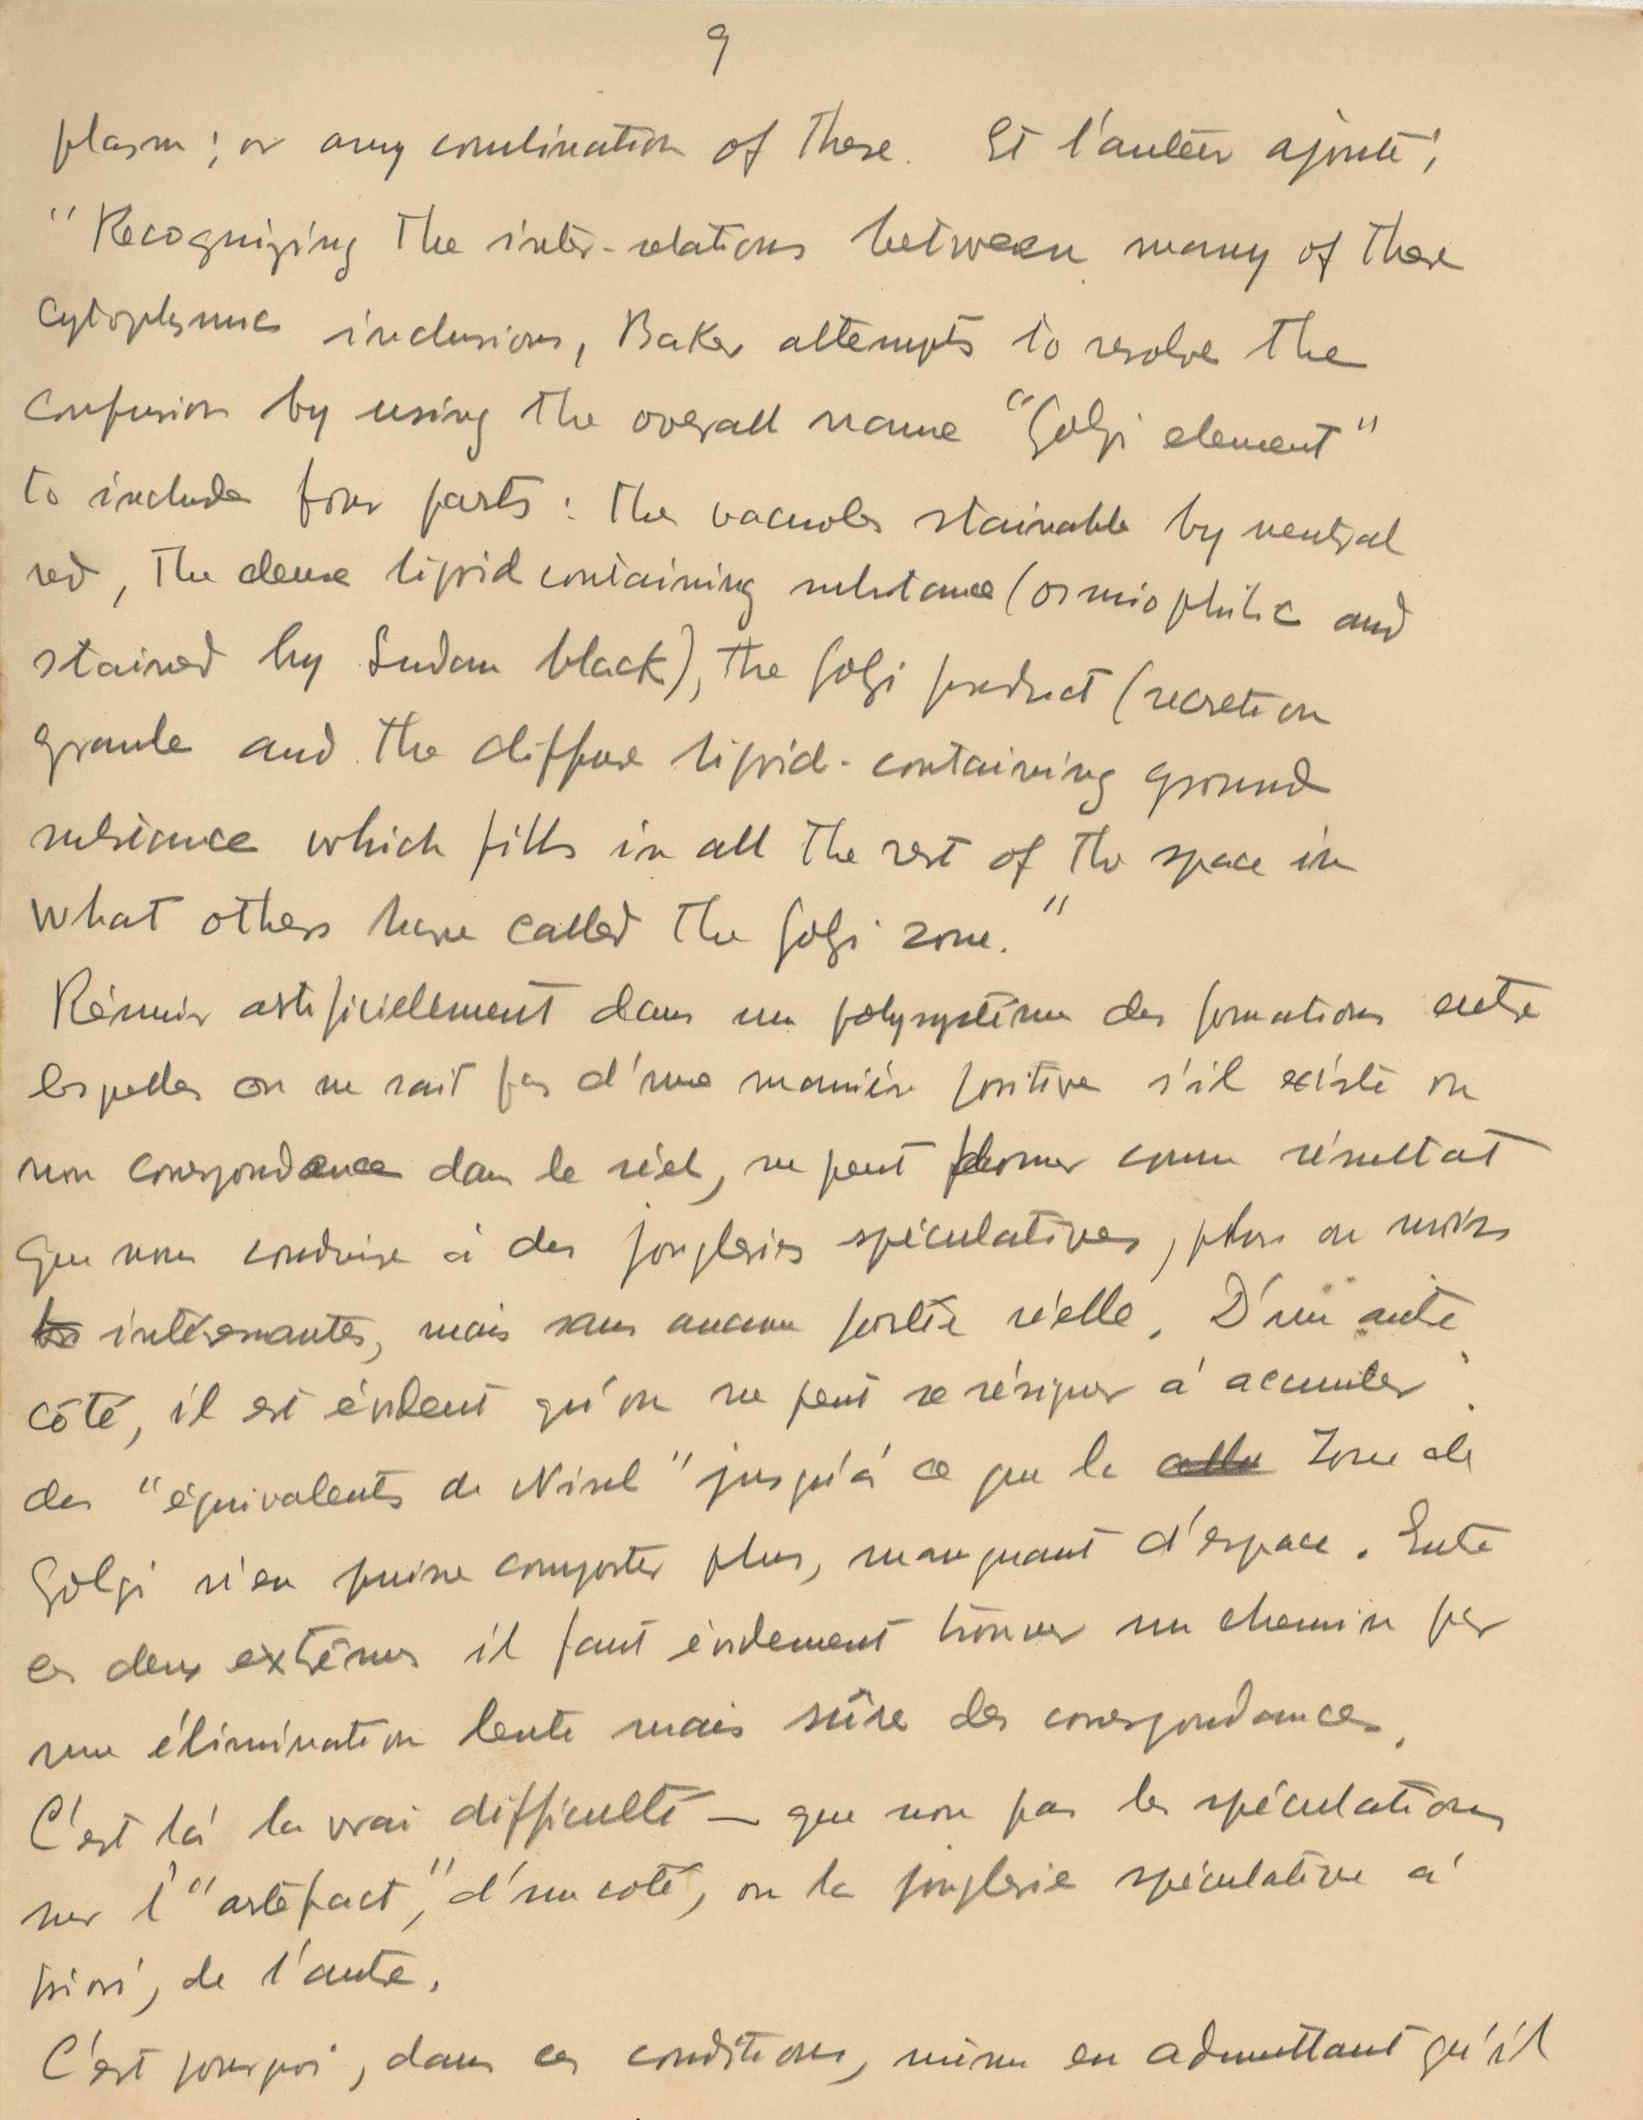 9
plasm; or any combination of these. Et l'auteur ajoute:
"Recognizing the inter-relations between many of these
cytoplasmic inclusions, Baker attempts to resolve the
confusion by using the overall name "Golgi element"
to include four parts: the vacuoles stainable by neutral
red, the dense lipoid containing substance (osmiophilic and
stained by Sudan black), the Golgi product (secretion
granule and the diffuse lipoid-containing ground
substance which fills in all the rest of the space in
what others have called the Golgi zone."
Réunir artificiellement dans un polysystème des formations entre
lesquelles on ne sait pas d'une manière positive s'il existe ou
non correspondance dans le réel, ne peut donner comme résultat
que nous conduire à des jongleries spéculatives, plus ou moins
intéressantes, mais sans aucune portée réelle. D'un autre
côté, il est évident qu'on ne peut se résigner à accumuler
des "équivalents de Nissl" jusqu'à ce que la zone de
Golgi n'en puisse comporter plus, manquant d'espace. Entre
ces deux extrêmes il faut évidement trouver un chemin par
une élimination lente mais sûre des correspondances.
C'est là la vrai difficulté — que non pas les spéculations
sur l'"artefact", d'un coté, ou la jonglerie spéculative a'
priori, de l'autre.
C'est pourquoi, dans ces conditions, même en admettant qu'il